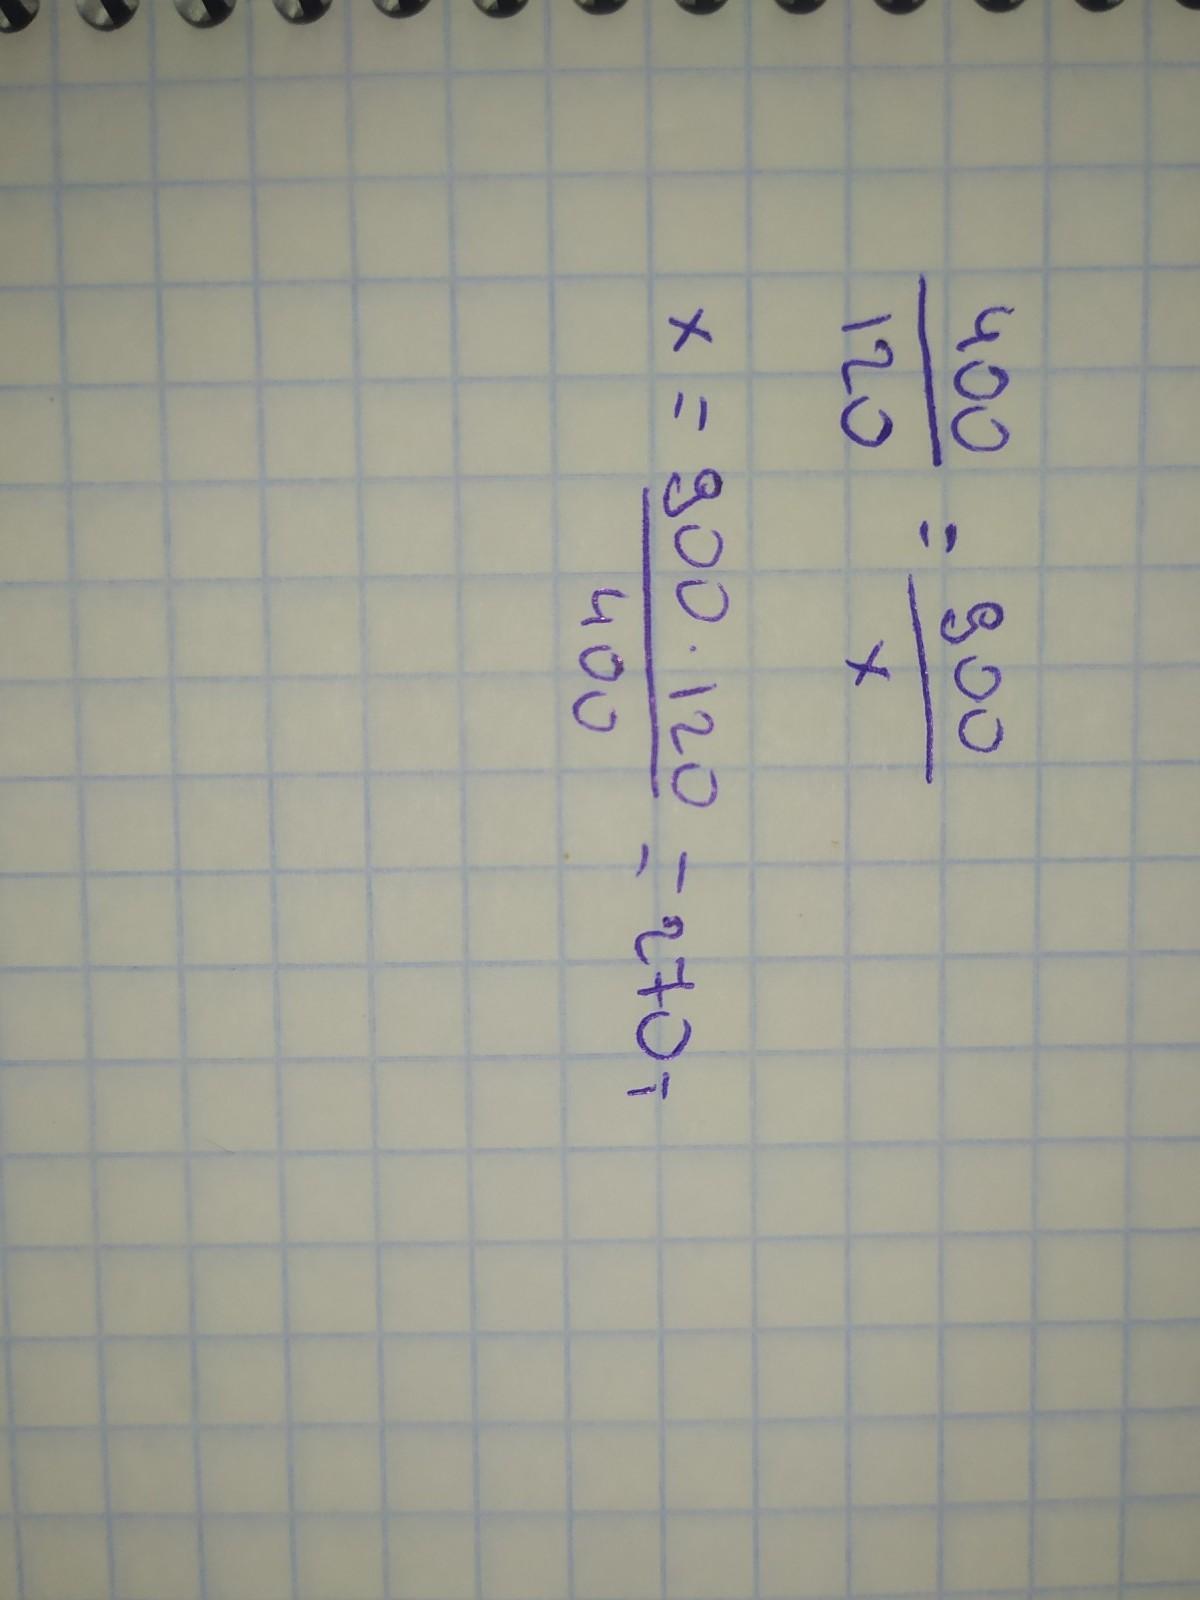 400/120 = 900/x
x = 900·120/400 = 270г